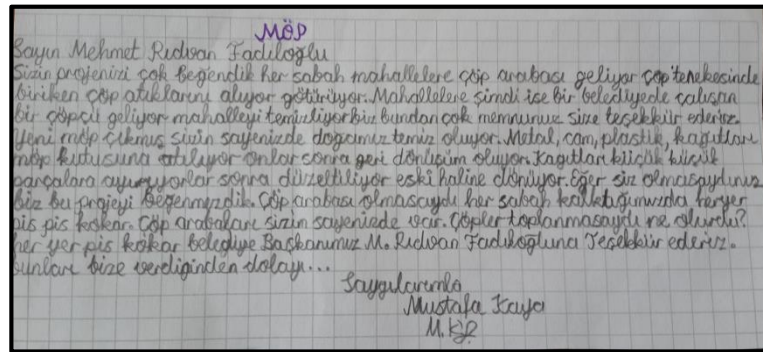 MÖP
Sayın Mehmet Rıdvan Fadıloğlu
Sizin projenizi çok beğendik her sabah mahallelere çöp arabası geliyor çöp tenekesinde
biriken çöp atıklarını alıyor götürüyor. Mahallelere şimdi ise bir belediyede çalışan
bir çöpçü geliyor mahalleyi temizliyor biz bundan çok memnunuz size teşekkür ederiz.
Yeni möp çıkmış sizin sayenizde doğamız temiz oluyor. Metal, cam, plastik, kağıtları
möp kutusuna atılıyor onlar sonra geri dönüşüm oluyor. Kağıtları küçük küçük
parçalara ayırıyorlar sonra düzeltiliyor eski haline dönüyor. Eğer siz olmasaydınız
biz bu projeyi beğenmezdik. Çöp arabası olmasaydı her sabah kalktığımızda heryer
pis pis kokar. Çöp arabaları sizin sayenizde var. Çöpler toplanmasaydı ne olurdu?
her yer pis kokar belediye Başkanımız M. Rıdvan Fadıloğluna Teşekkür ederiz.
bunları bize verdiginden dolayı...
Saygılarımla
Mustafa Kaya